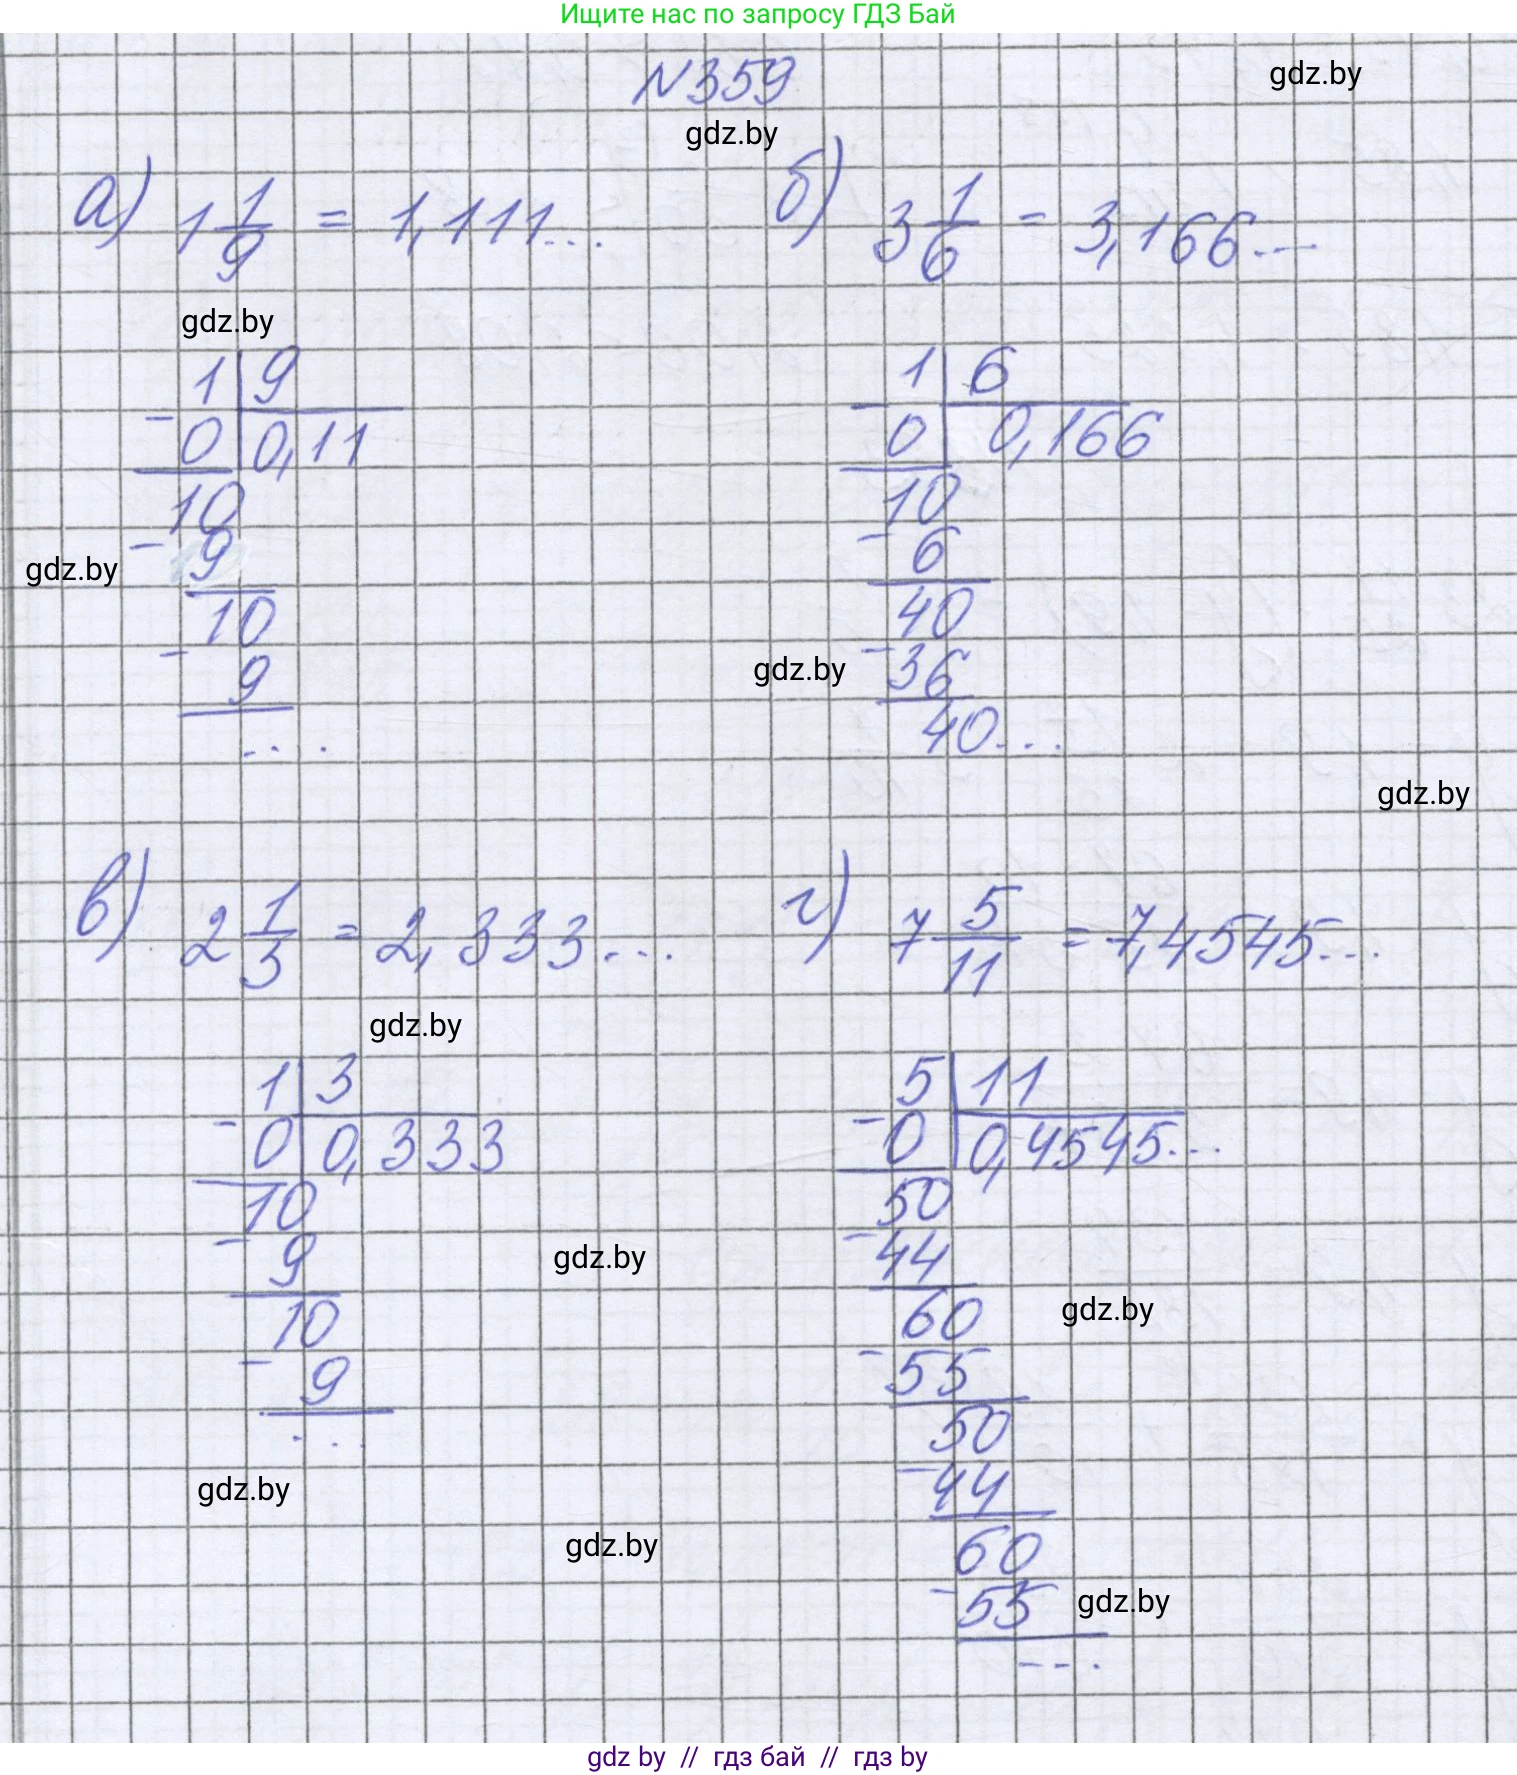 Ищите нас по запросу ГДЗ Бай
N359
gdz.by
gdz.by
а) 1 1/9 = 1,111...
б) 3 1/6 = 3,166...
gdz.by
1 | 9
- 0 | 0,11
10
- 9
gdz.by
10
- 9
...
1 | 6
- 0 | 0,166
10
- 6
40
- 36
gdz.by
40...
gdz.by
в) 2 1/3 = 2,333...
г) 7 5/11 = 7,4545...
gdz.by
1 | 3
- 0 | 0,333
10
- 9
gdz.by
10
- 9
...
gdz.by
gdz.by
5 | 11
- 0 | 0,4545...
50
- 44
60
gdz.by
- 55
50
- 44
60
- 55
gdz.by
...
gdz by // гдз бай // гдз by